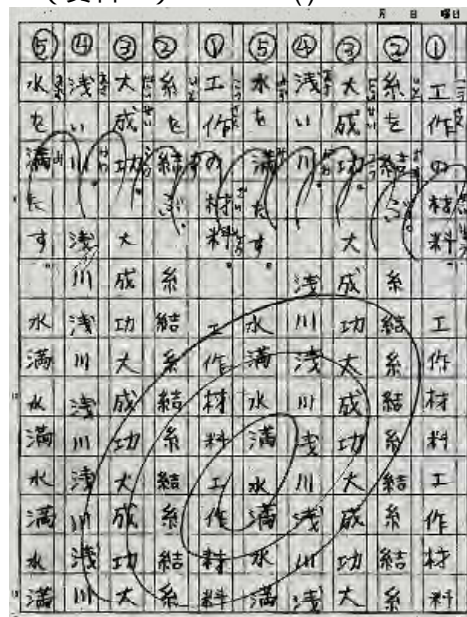 月 日 曜日
① 工作の材料。工作材料工作材料
② 糸を結ぶ。糸結糸結糸結糸結糸
③ 大成功。大成功大成功大成功大
④ 浅い川。浅川浅川浅川浅川浅
⑤ 水を満たす。水満水満水満水満
① 工作の材料。工作材料工作材料
② 糸を結ぶ。糸結糸結糸結糸結糸
③ 大成功。大成功大成功大成功大
④ 浅い川。浅川浅川浅川浅川浅川
⑤ 水を満たす。水満水満水満水満